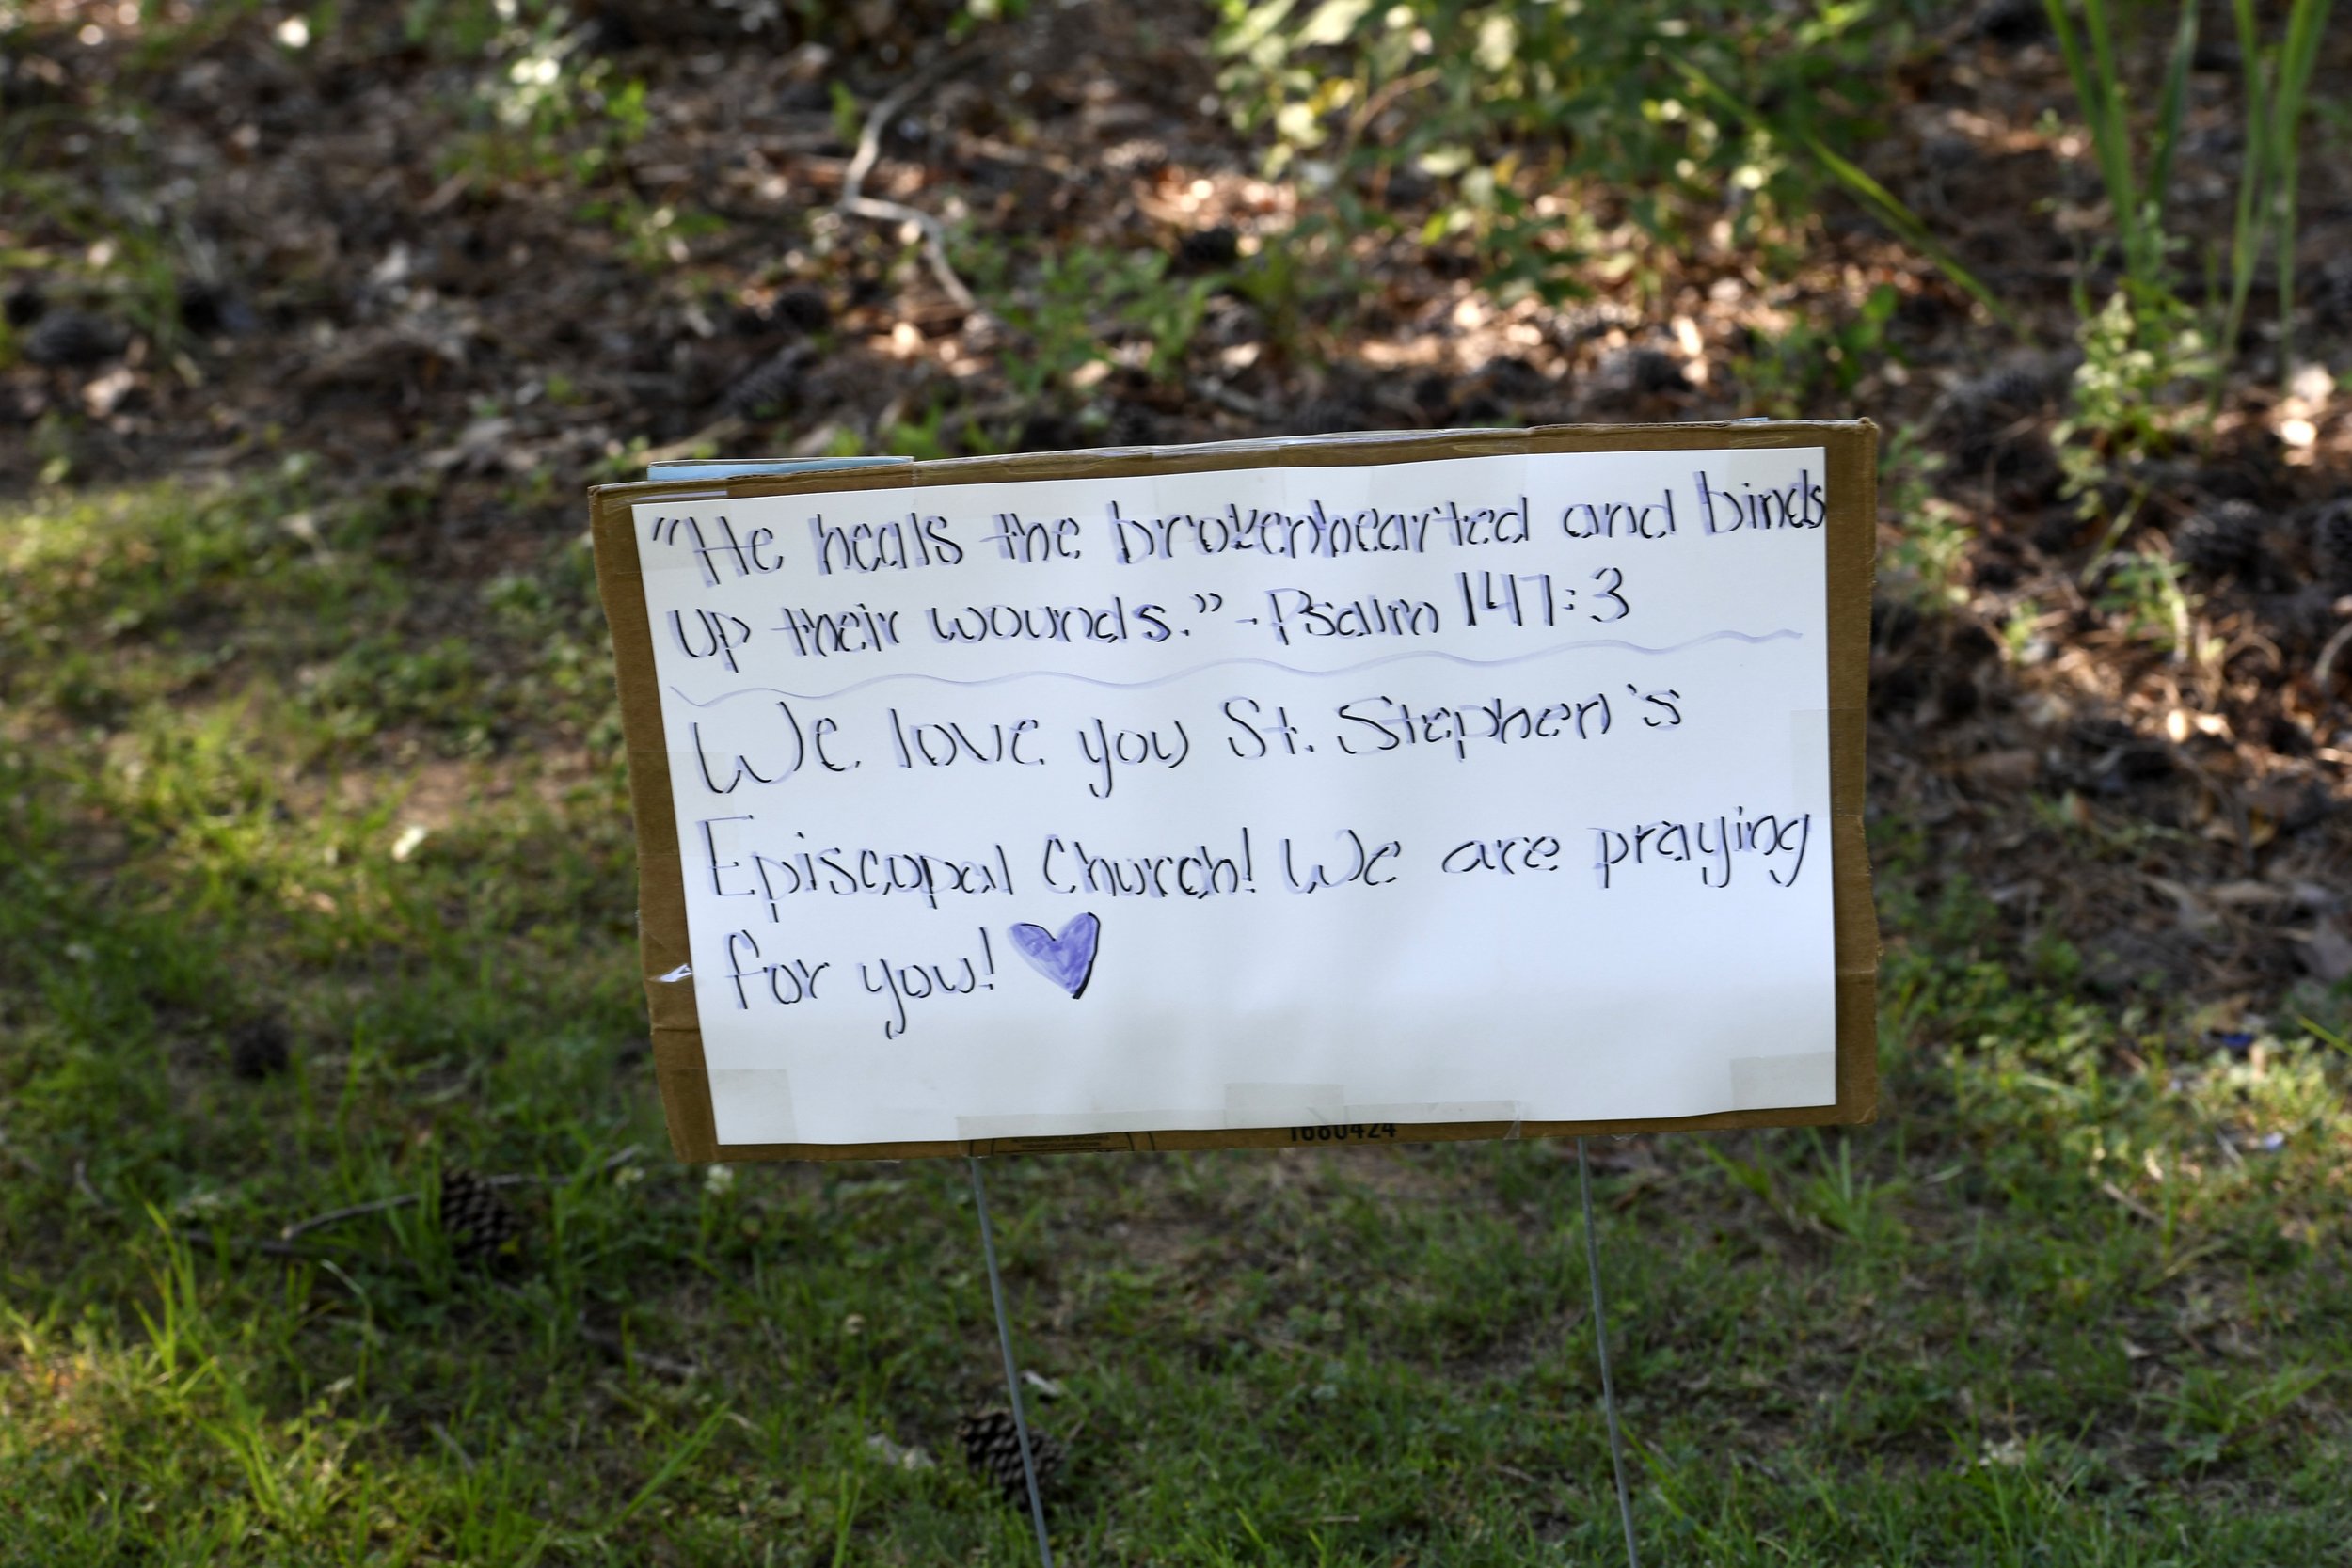 "He heals the brokenhearted and binds
up their wounds." - Psalm 147:3
We love you St. Stephen's
Episcopal Church! We are praying
for you!
1680424